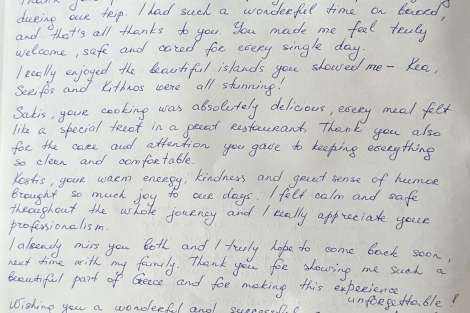 during our trip. I had such a wonderful time on board,
and that's all thanks to you. You made me feel truly
welcome, safe and cared for every single day.
I really enjoyed the beautiful islands you showed me – Kea,
Serifos and Kithnos were all stunning!
Sakis, your cooking was absolutely delicious, every meal felt
like a special treat in a great restaurant. Thank you also
for the care and attention you gave to keeping everything
so clean and comfortable.
Kostis, your warm energy, kindness and great sense of humor
brought so much joy to our days. I felt calm and safe
throughout the whole journey and I really appreciate your
professionalism.
I already miss you both and I truly hope to come back soon,
next time with my family. Thank you for showing me such a
beautiful part of Greece and for making this experience
unforgettable!
Wishing you a wonderful and successful